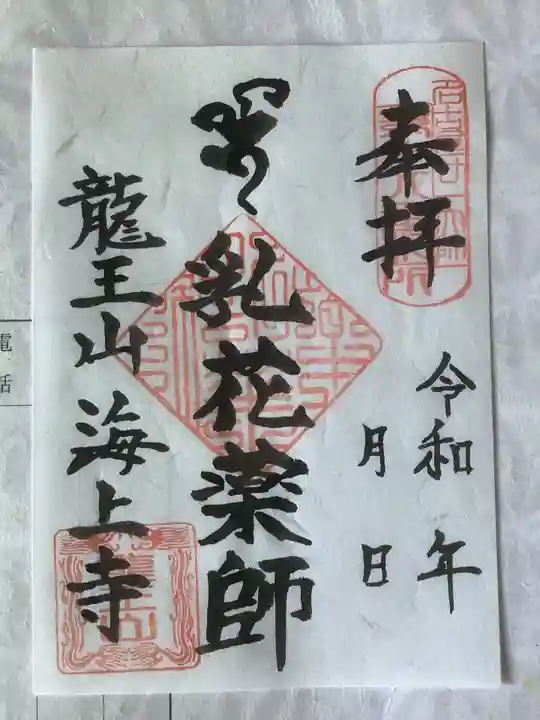 奉拝
令和 年
月 日
乳花薬師
龍王山 海上寺
電話